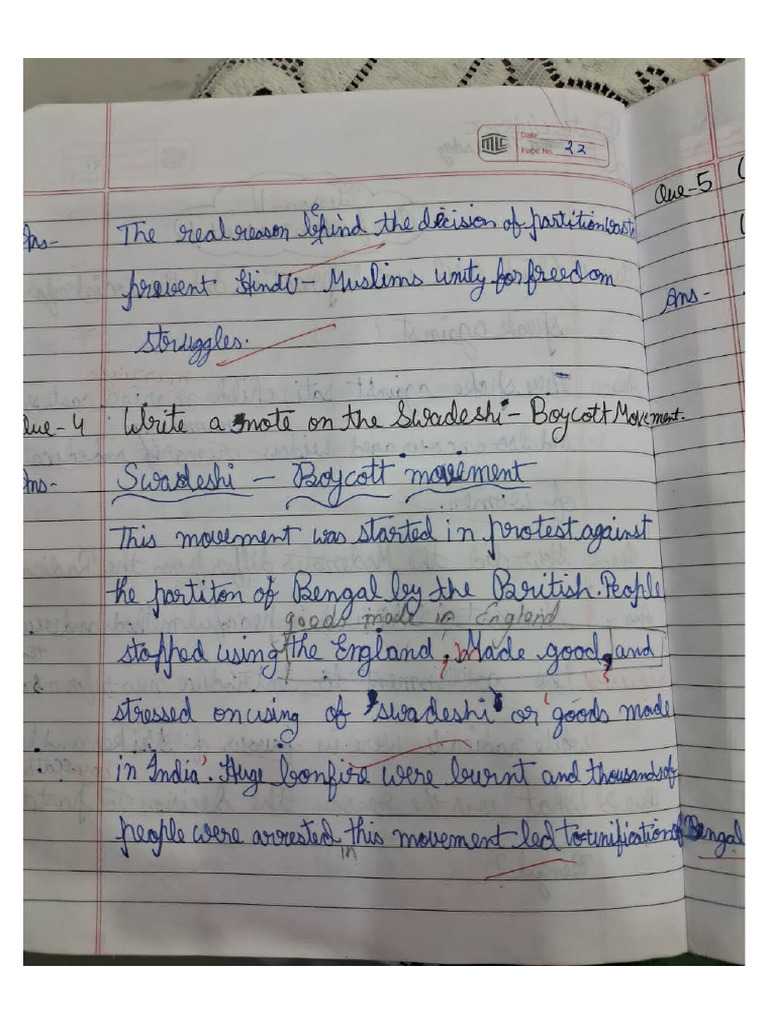 MLC Date
Page No. 22
Ans- The real reason behind the decision of partition was to
prevent Hindu - Muslims unity for freedom
struggles.
Que-4 Write a note on the Swadeshi - Boycott Movement.
Ans- Swadeshi - Boycott movement
This movement was started in protest against
the partiton of Bengal by the British. People
goods made in England
stopped using the England, Made good, and
stressed on using of 'swadeshi' or 'goods made
in India'. Huge bonfire were burnt and thousands of
people were arrested this movement led to unification of Bengal
in
Que-5
Ans-